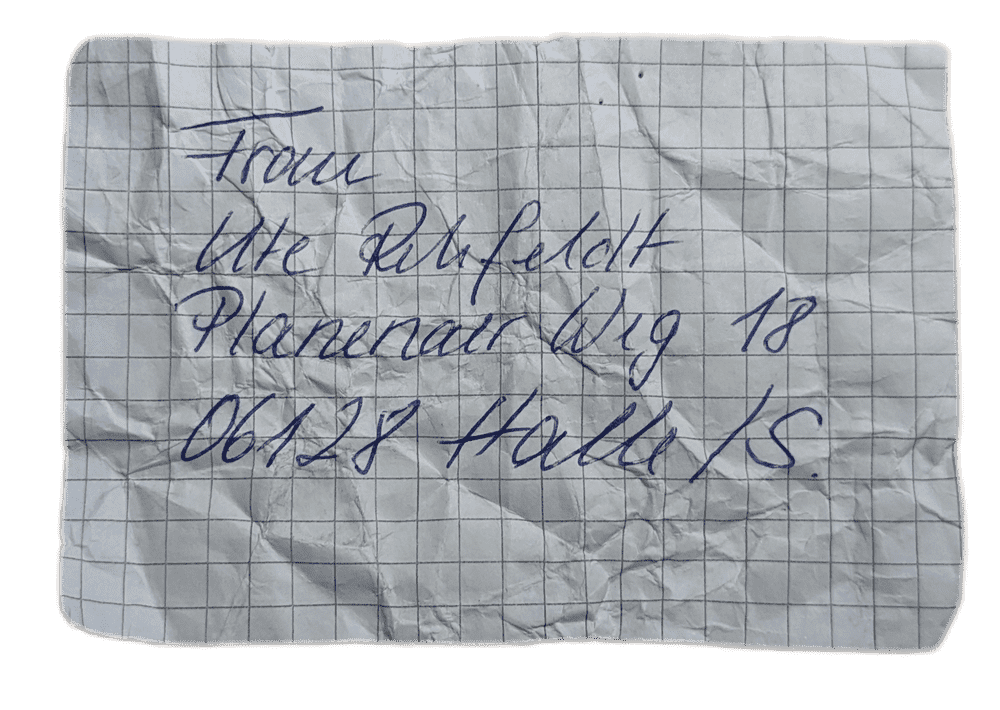 Frau
Ute Ruhfeldt
Planenaer Weg 18
06128 Halle/S.